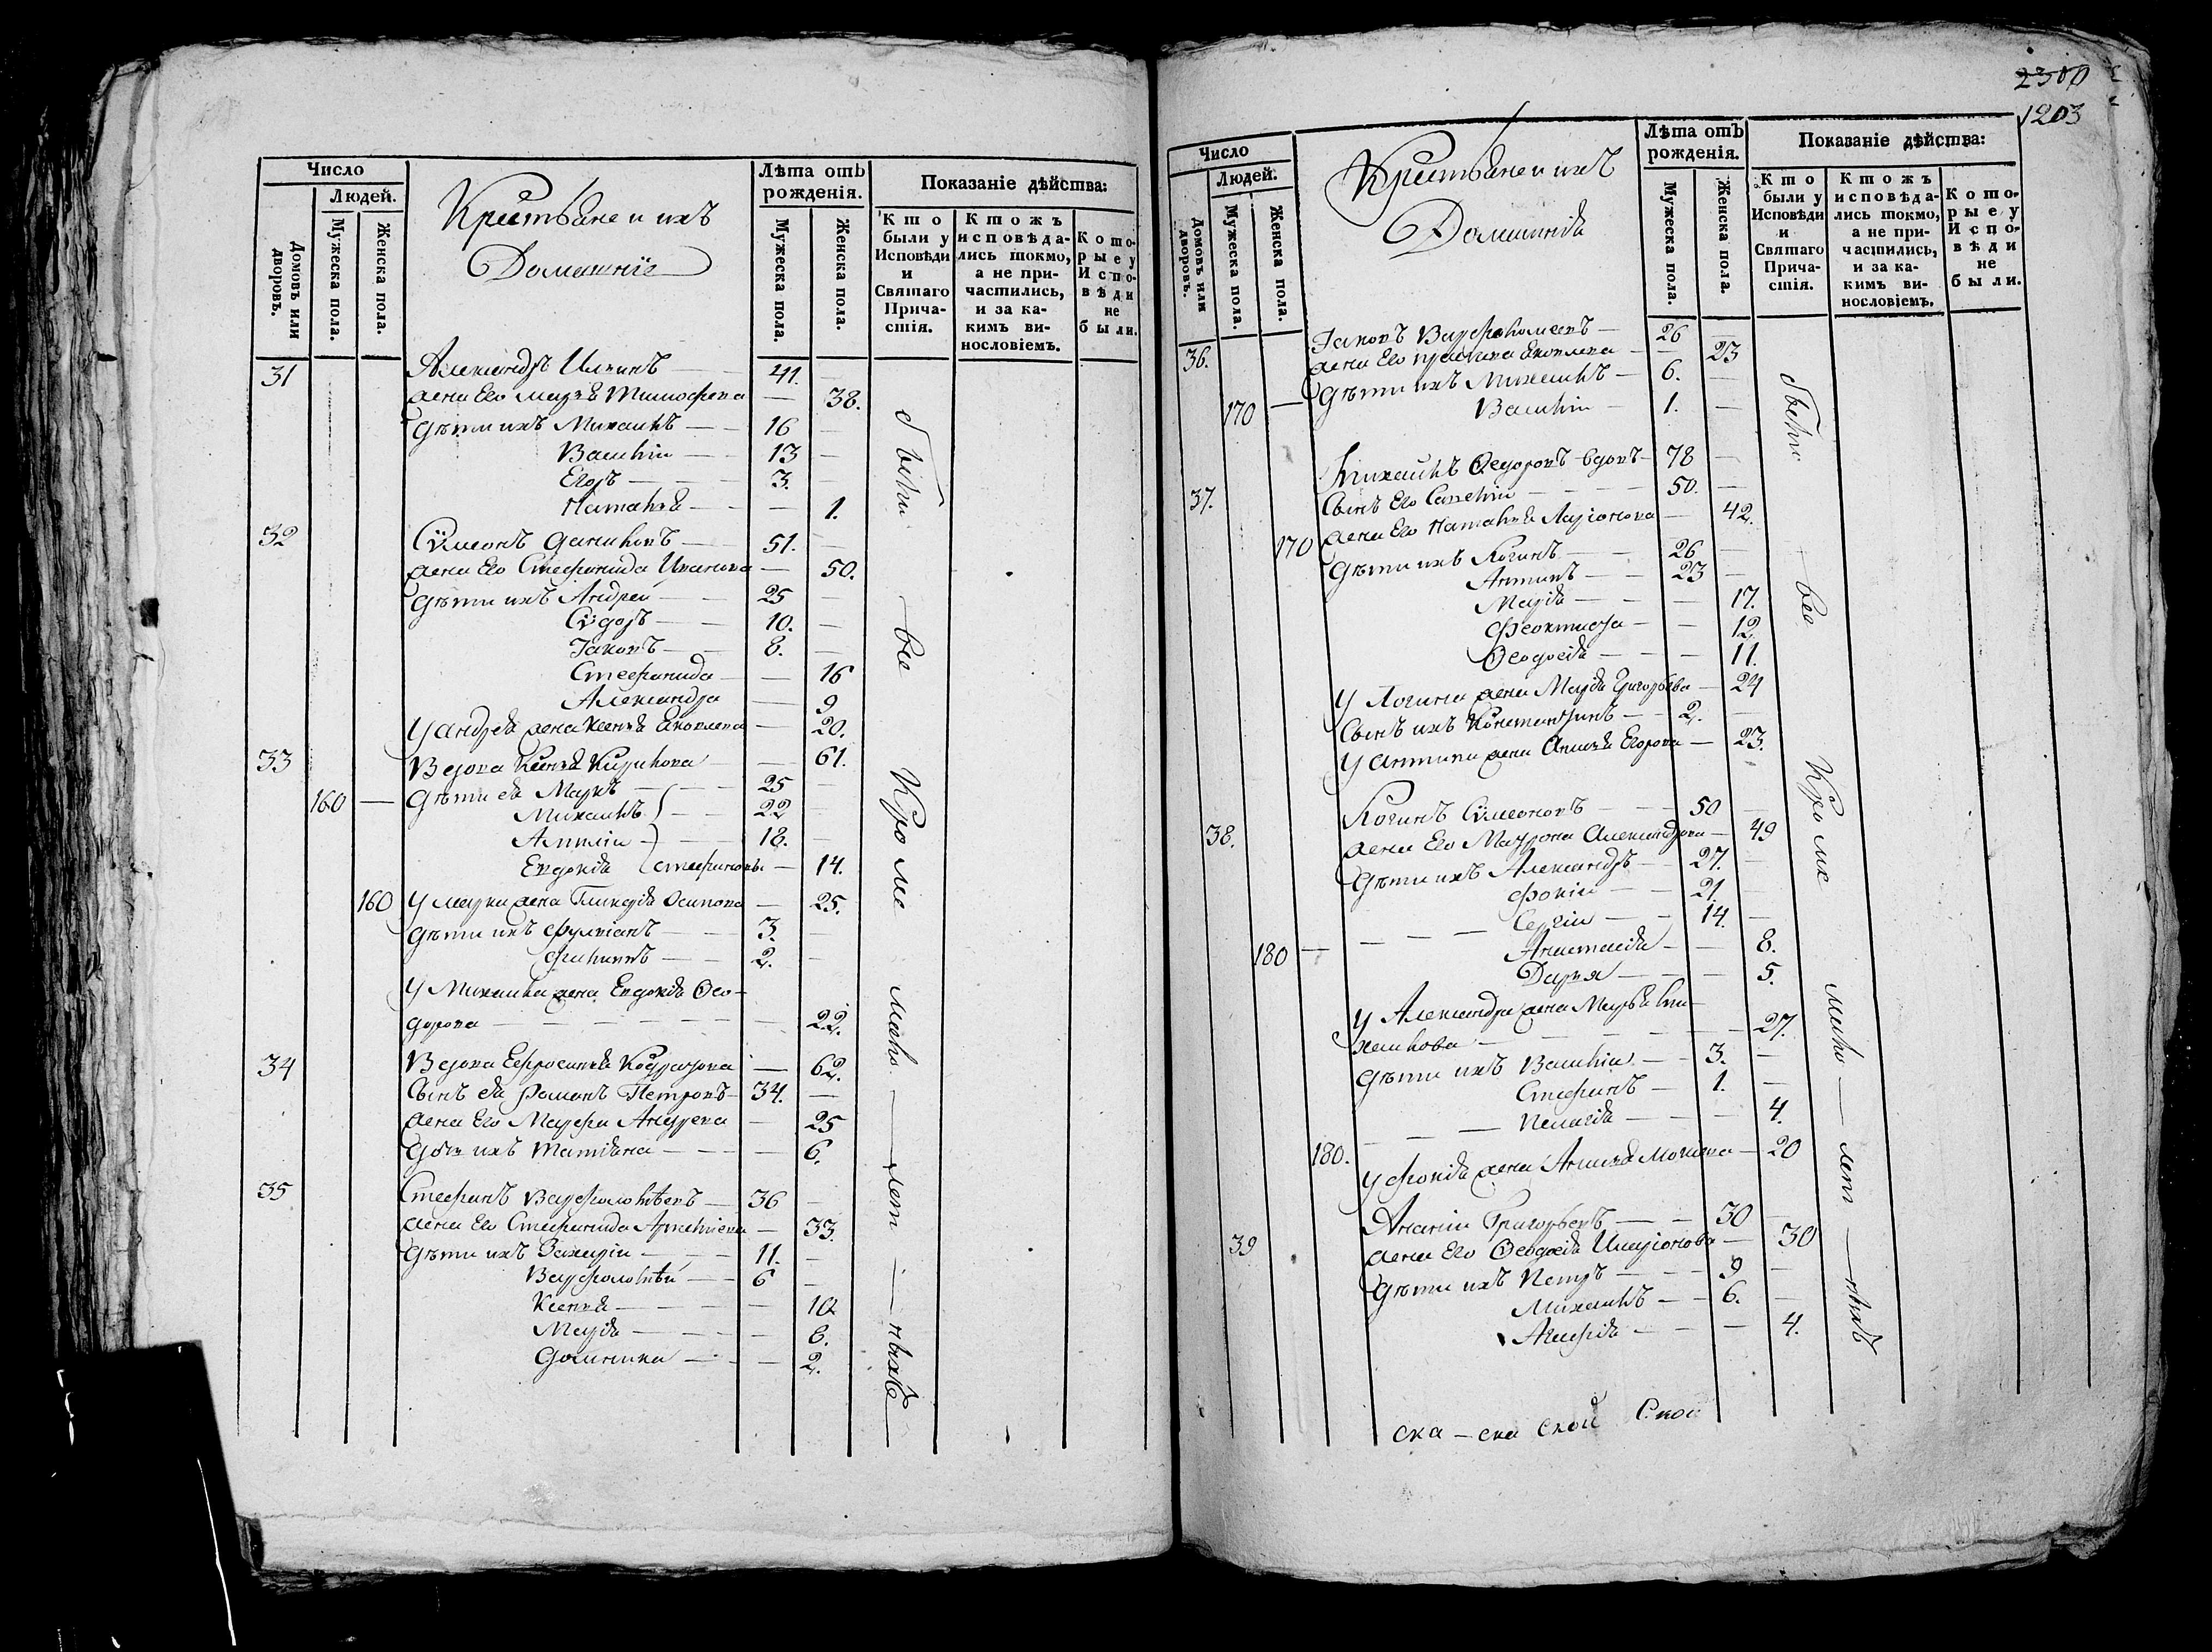 Число
Людей.
Домовъ или дворовъ.
Мужеска пола.
Женска пола.
Крестьяне и ихъ
Домашніе
Лѣта отъ рожденія.
Мужеска пола.
Женска пола.
Показаніе дѣйства:
Кто были у Исповѣди и Святаго Причастія.
Ктожъ исповѣдались токмо, а не причастились, и за какимъ винословіемъ.
Которые у Исповѣди не были.
31 Александръ Ильинъ — 41.
жена Его марѳа Тимофеева — 38.
дѣти ихъ Михаилъ — 16
Василiи — 13
Егоръ — 3.
Наталья — 1.
32 Сѵмеонъ Даниловъ — 51.
жена Его Стефанида Иванова — 50.
дѣти ихъ Андреи — 25
Сѵдоръ — 10.
Іаковъ — 8.
Стефанида — 16
Александра — 9
У андрея жена Ксенья Яковлева — 20.
33 Вдова Ксенья Кирилова — 61.
160 — дѣти ея Маркъ — 25
Михаилъ — 22
18.
Евдокія Стефановы — 14.
160 У марка жена Гликерія Осипова — 25.
дѣти ихъ — 3.
Филиппъ — 2.
У Михаила жена Евдокія Ѳео-
дорова — 22.
34 Вдова Ефросинья — 62.
Сынъ ея Романъ Петровъ — 34.
жена Его Марфа Андреева — 25
дочь ихъ Татіяна — 6.
35 Стефанъ Варфоломѣевъ — 36
жена Его Стефанида — 33.
дѣти ихъ Захаріи — 11.
Варфоломѣй — 6
Ксенья — 10
Марія — 8.
Домника — 2.
были — все — Кроме — мало — лет — ныхъ
2300
1203
Число
Людей.
Домовъ или дворовъ.
Мужеска пола.
Женска пола.
Крестьяне и ихъ
Домашнія
Лѣта отъ рожденія.
Мужеска пола.
Женска пола.
Показаніе дѣйства:
Кто были у Исповѣди и Святаго Причастія.
Ктожъ исповѣдались токмо, а не причастились, и за какимъ винословіемъ.
Которые у Исповѣди не были.
36. Іаковъ Варфоломеевъ — 26
жена Его Яковлева — 23
дѣти ихъ Михаилъ — 6.
170 — Василіи — 1.
37. Михаилъ Ѳедоровъ вдовъ — 78
Сынъ Его Савелiи — 50.
170 жена Его Наталья Ларіонова — 42.
дѣти ихъ Логинъ — 26
Антипъ — 23
Марія — 17.
Феоктиста — 12.
Ѳеодосія — 11.
У Логина жена Марія Григорьева — 24
Сынъ ихъ Константинъ — 2.
У Антипа жена Анисья Егорова — 23.
38. Логинъ Сѵмеоновъ — 50
жена Его Матрона Александрова — 49
дѣти ихъ Александръ — 27.
Фокіи — 21.
Сергіи — 14.
180 — Анастасія — 8.
Дарья — 5.
У Александра жена Марья Ми-
хаилова — 27.
дѣти ихъ Василіи — 3.
Стефанъ — 1.
Пелагія — 4.
180. У Фокія жена Анисья Мокіева — 20
39 Ананіи Григорьевъ — 30
жена Его Ѳеодосія Иларіонова — 30
дѣти ихъ Петръ — 9
Михаилъ — 6.
Агафія — 4.
были — все — Кроме — мало — лет — ныхъ
ска — ска ской Ской